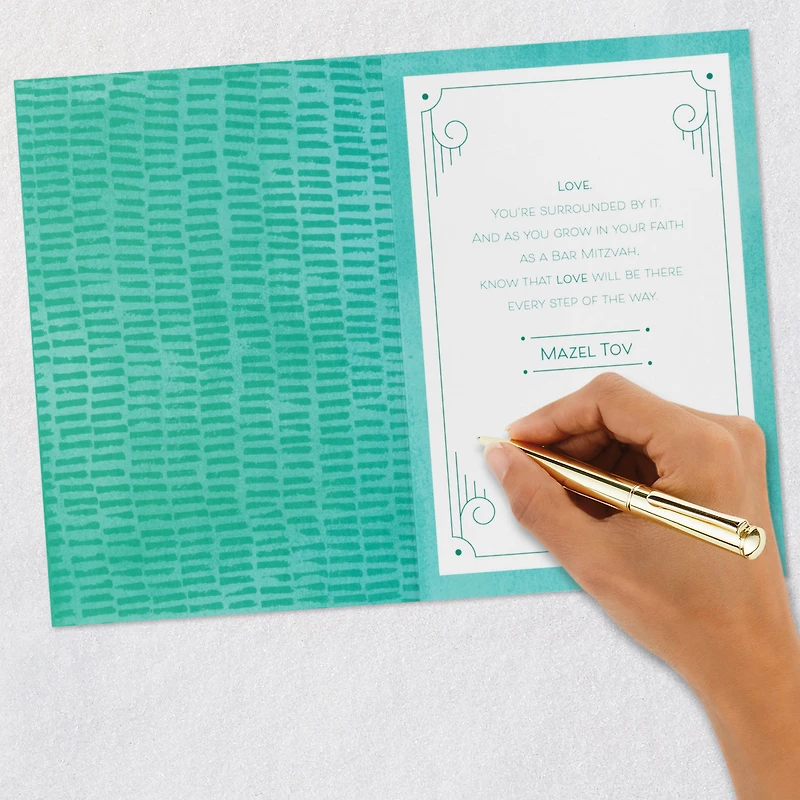 LOVE.
YOU'RE SURROUNDED BY IT.
AND AS YOU GROW IN YOUR FAITH
AS A BAR MITZVAH,
KNOW THAT LOVE WILL BE THERE
EVERY STEP OF THE WAY.
MAZEL TOV